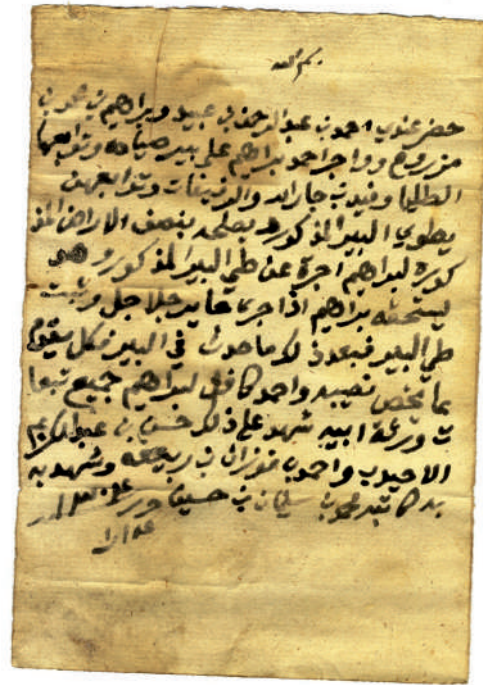 بسم الله
حضر عندي احمد بن عبد الرحمن بن عبيد وبراهيم بن حمد بن
مزروع وواجر احمد براهيم على بير صياحه وتوابعها
الطليا وفيد بن جار الله والزنيفات وتوابعهن
يطوي البير المذكوره يصلحه بنصف الاراض المذ
كوره لبراهيم اجرة عن طي البير المذكور وهو
يستحقه براهيم اذا جرى ما يد جلا جل وثبت
طي البير فبعد ذلك ما حدث في البير فكل يقوم
بما يخص نصيبه واحمد كافل لبراهيم جميع تبعا
ت ورعة ابيه شهد على ذلك حسين بن عبد الكريم
الاحيدب واحمد بن فوزان بن ربيعه وشهد به
كاتبه محمد بن سليمان بن حسين